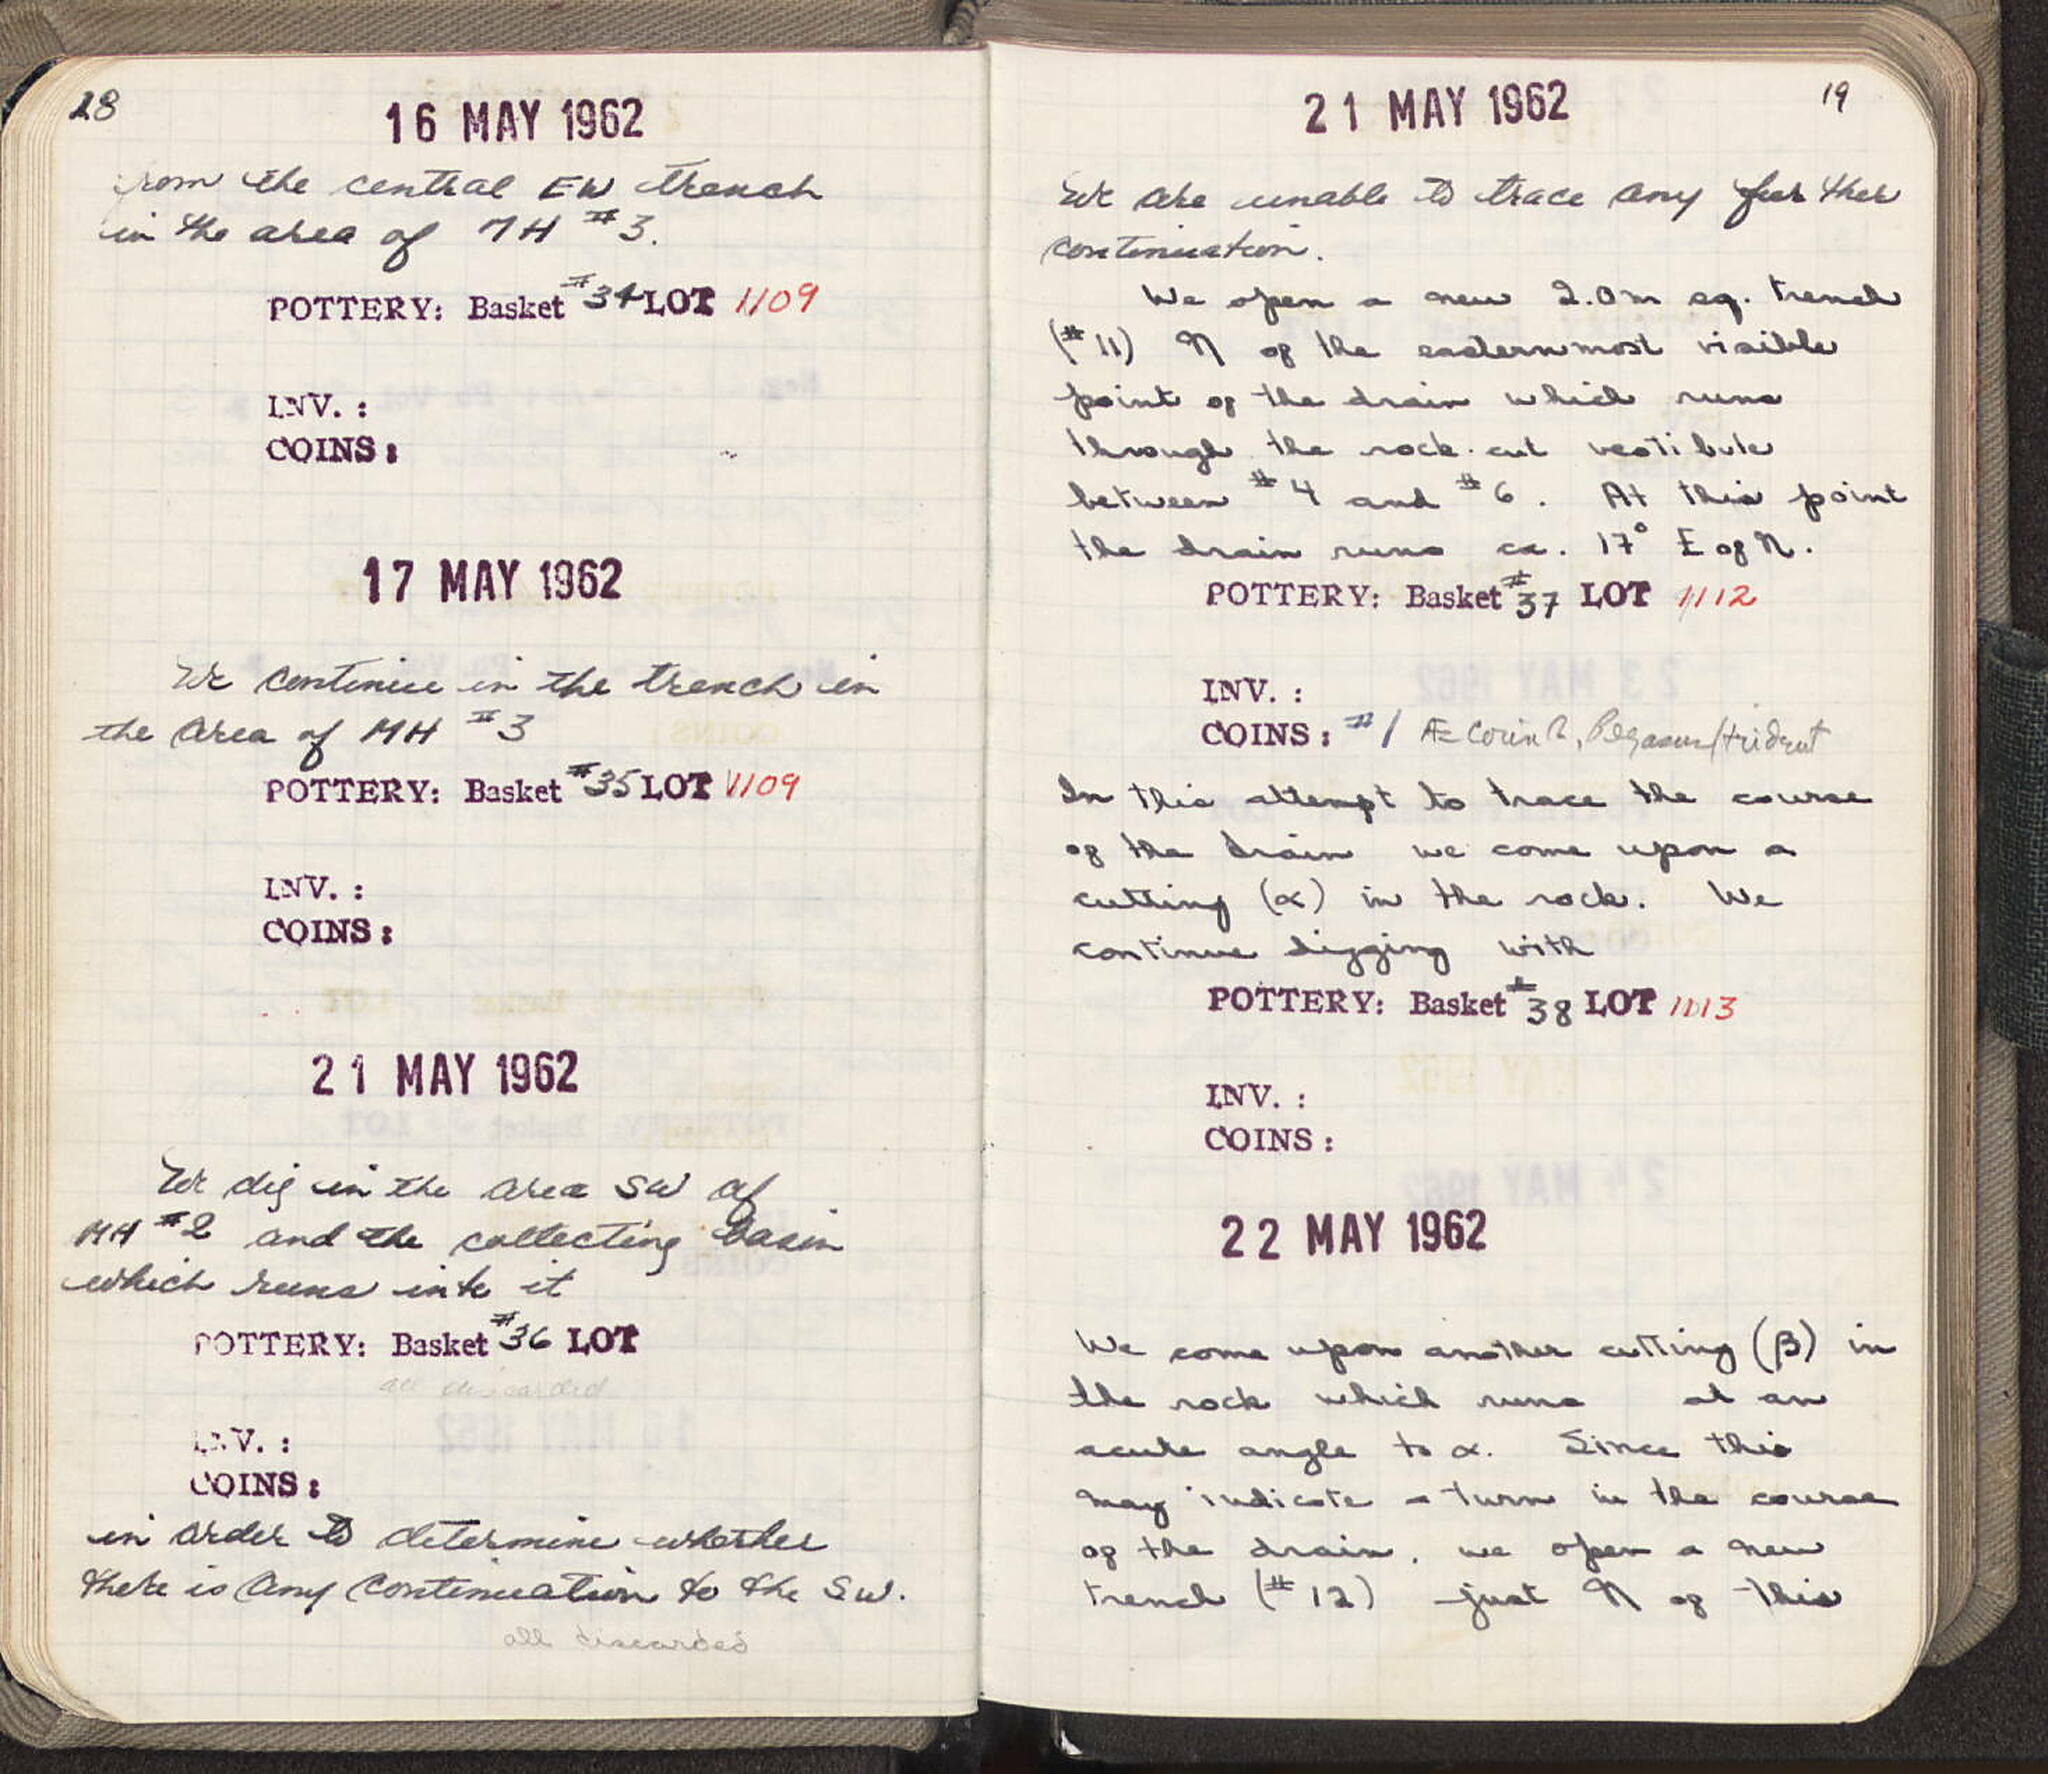 18
16 MAY 1962
from the central EW trench
in the area of MH #3.
POTTERY: Basket #34 LOT 1109
INV. :
COINS :
17 MAY 1962
We continue in the trench in
the area of MH #3
POTTERY: Basket #35 LOT 1109
INV. :
COINS :
21 MAY 1962
We dig in the area SW of
MH #2 and the collecting basin
which runs into it
POTTERY: Basket #36 LOT
all discarded
INV. :
COINS :
in order to determine whether
there is any continuation to the SW.
all discarded
19
21 MAY 1962
We are unable to trace any further
continuation.
We open a new 2.0m sq. trench
(#11) N of the easternmost visible
point of the drain which runs
through the rock-cut vestibule
between #4 and #6. At this point
the drain runs ca. 17° E of N.
POTTERY: Basket #37 LOT 1112
INV. :
COINS : #1 Æ Corinth, Pegasus/trident
In this attempt to trace the course
of the drain we come upon a
cutting (α) in the rock. We
continue digging with
POTTERY: Basket #38 LOT 1113
INV. :
COINS :
22 MAY 1962
We come upon another cutting (β) in
the rock which runs at an
acute angle to α. Since this
may indicate a turn in the course
of the drain, we open a new
trench (#12) just N of this